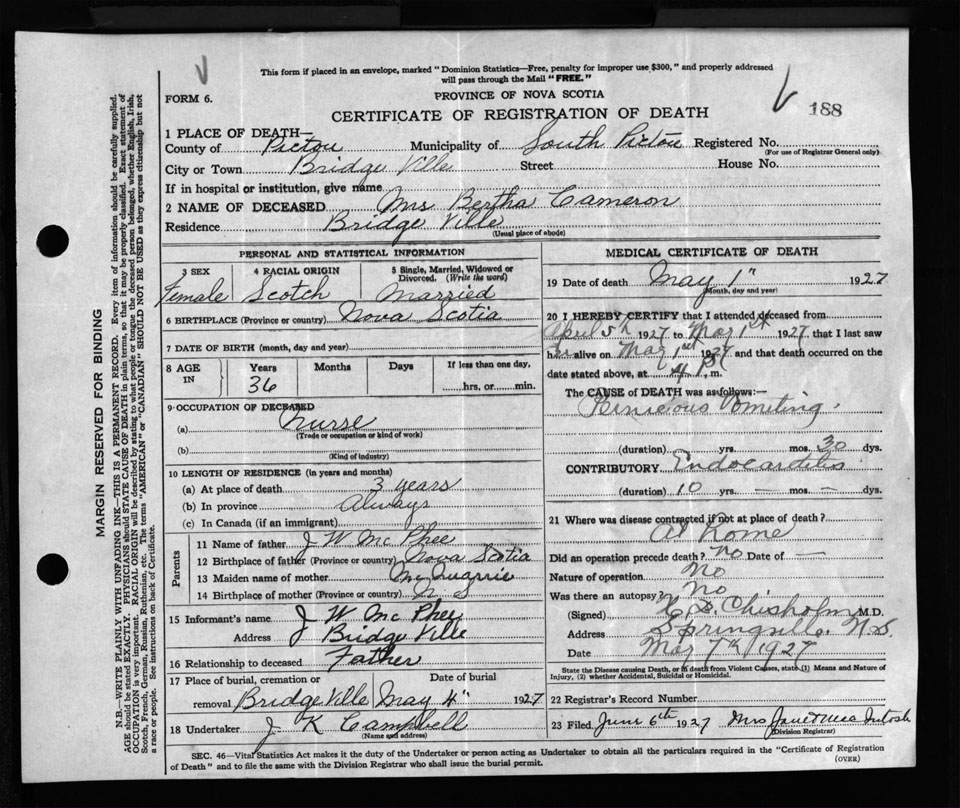 This form if placed in an envelope, marked "Dominion Statistics—Free, penalty for improper use $300," and properly addressed
will pass through the Mail "FREE."
FORM 6.
PROVINCE OF NOVA SCOTIA
CERTIFICATE OF REGISTRATION OF DEATH
188
1 PLACE OF DEATH—
County of Pictou Municipality of South Pictou Registered No.
(For use of Registrar General only)
City or Town Bridge Ville Street House No.
If in hospital or institution, give name
2 NAME OF DECEASED Mrs Bertha Cameron
Residence Bridge Ville
(Usual place of abode)
PERSONAL AND STATISTICAL INFORMATION
3 SEX 4 RACIAL ORIGIN 5 Single, Married, Widowed or
Divorced. (Write the word)
Female Scotch Married
6 BIRTHPLACE (Province or country) Nova Scotia
7 DATE OF BIRTH (month, day and year)
8 AGE IN Years Months Days If less than one day,
36 hrs, or min.
9 OCCUPATION OF DECEASED
(a) Nurse
(Trade or occupation or kind of work)
(b)
(Kind of industry)
10 LENGTH OF RESIDENCE (in years and months)
(a) At place of death 3 years
(b) In province Always
(c) In Canada (if an immigrant)
Parents
11 Name of father J W Mc Phee
12 Birthplace of father (Province or country) Nova Scotia
13 Maiden name of mother
14 Birthplace of mother (Province or country) N S
15 Informant's name J W Mc Phee
Address Bridge Ville
16 Relationship to deceased Father
17 Place of burial, cremation or Date of burial
removal Bridge Ville May 4" 1927
18 Undertaker J K Campbell
(Name and address)
MEDICAL CERTIFICATE OF DEATH
19 Date of death May 1" 1927
(Month, day and year)
20 I HEREBY CERTIFY that I attended deceased from
April 5th 1927 to May 1st 1927, that I last saw
her alive on May 1st 1927 and that death occurred on the
date stated above, at 4 P. m.
The CAUSE of DEATH was as follows:—
Pernicious Vomiting.
(duration) yrs. — mos. 30 dys.
CONTRIBUTORY Endocarditis
(duration) 10 yrs. — mos. — dys.
21 Where was disease contracted if not at place of death?
At Home
Did an operation precede death? No Date of —
Nature of operation No
Was there an autopsy? No
(Signed) Chisholm M.D.
Address Springville. N.S.
Date May 7th 1927
State the Disease causing Death, or in death from Violent Causes, state (1) Means and Nature of
Injury, (2) whether Accidental, Suicidal or Homicidal.
22 Registrar's Record Number
23 Filed June 6th 1927 Mrs
(Division Registrar)
SEC. 46—Vital Statistics Act makes it the duty of the Undertaker or person acting as Undertaker to obtain all the particulars required in the "Certificate of Registration
of Death" and to file the same with the Division Registrar who shall issue the burial permit.
(OVER)
MARGIN RESERVED FOR BINDING
N.B.—WRITE PLAINLY WITH UNFADING INK—THIS IS A PERMANENT RECORD. Every item of information should be carefully supplied.
AGE should be stated EXACTLY. PHYSICIANS should STATE CAUSE OF DEATH in plain terms, so that it may be properly classified. Exact statement of
OCCUPATION is very important. RACIAL ORIGIN will be described by stating to what people or tongue the deceased person belonged, whether English, Irish,
Scotch, French, German, Russian, Ruthenian, etc. The terms "AMERICAN" or "CANADIAN" SHOULD NOT BE USED as they express citizenship but not
a race or people. See instructions on back of Certificate.